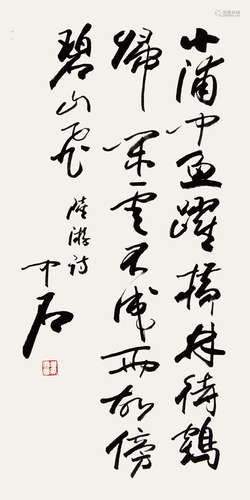 小浦聞魚躍橫林待鶴
歸閑雲不成雨故傍
碧山飛
陸游詩
中石